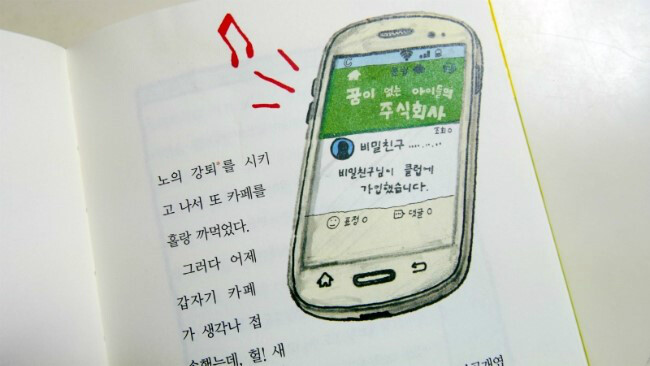 노의 강퇴*를 시키
고 나서 또 카페를
홀랑 까먹었다.
그러다 어제
갑자기 카페
가 생각나 접
속했는데, 헐! 새
꿈이 없는 아이들의
주식회사
조회 0
비밀친구 ........
비밀친구님이 클럽에
가입했습니다.
표정 0 댓글 0